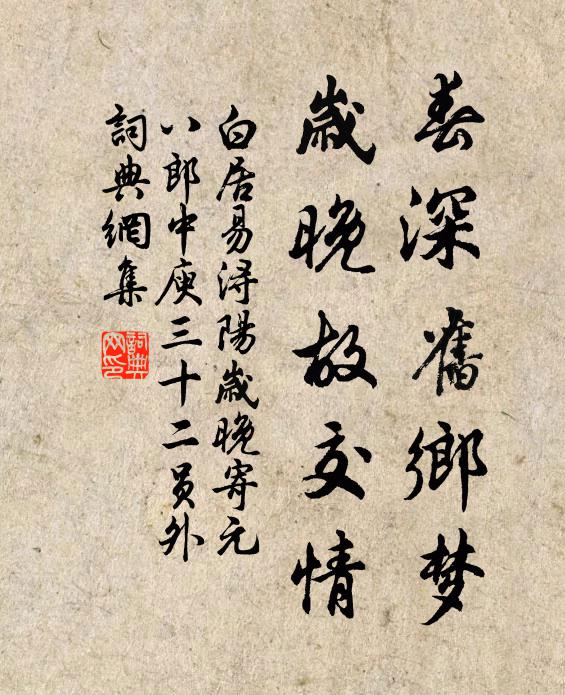 春深舊鄉梦
歲晚故交情
白居易浔陽歲晚寄元
八郎中庾三十二員外
詞典網集
詞典网印